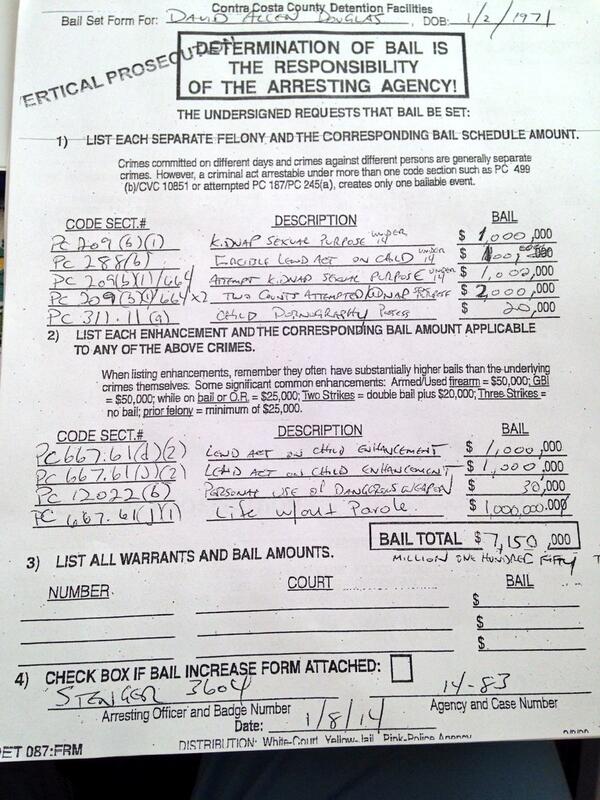 Contra Costa County Detention Facilities
Bail Set Form For: DAVID ALLEN DOUGLAS, DOB: 1/2/1971
VERTICAL PROSECUTION
DETERMINATION OF BAIL IS
THE RESPONSIBILITY
OF THE ARRESTING AGENCY!
THE UNDERSIGNED REQUESTS THAT BAIL BE SET:
1) LIST EACH SEPARATE FELONY AND THE CORRESPONDING BAIL SCHEDULE AMOUNT.
Crimes committed on different days and crimes against different persons are generally separate
crimes. However, a criminal act arrestable under more than one code section such as PC 499
(b)/CVC 10851 or attempted PC 187/PC 245(a), creates only one bailable event.
CODE SECT.# DESCRIPTION BAIL
PC 209(b)(1) KIDNAP SEXUAL PURPOSE UNDER 14 $ 1,000,000
PC 288(b) FORCIBLE LEWD ACT ON CHILD UNDER 14 $
PC 209(b)(1)/664 ATTEMPT KIDNAP SEXUAL PURPOSE UNDER 14 $ 1,000,000
PC 209(b)(1)/664 x2 TWO COUNTS ATTEMPTED KIDNAP SEX PURPOSE $ 2,000,000
PC 311.11(a) CHILD PORNOGRAPHY POSSESS $ 20,000
2) LIST EACH ENHANCEMENT AND THE CORRESPONDING BAIL AMOUNT APPLICABLE
TO ANY OF THE ABOVE CRIMES.
When listing enhancements, remember they often have substantially higher bails than the underlying
crimes themselves. Some significant common enhancements: Armed/Used firearm = $50,000; GBI
= $50,000; while on bail or O.R. = $25,000; Two Strikes = double bail plus $20,000; Three Strikes =
no bail; prior felony = minimum of $25,000.
CODE SECT.# DESCRIPTION BAIL
PC 667.61(d)(2) LEWD ACT ON CHILD ENHANCEMENT $ 1,000,000
PC 667.61(J)(2) LEWD ACT ON CHILD ENHANCEMENT $ 1,000,000
PC 12022(b) PERSONAL USE OF DANGEROUS WEAPON $ 30,000
PC 667.61(j)(1) Life w/out Parole $ 1,000,000.000
BAIL TOTAL $ 7,150,000
MILLION ONE HUNDRED FIFTY T
3) LIST ALL WARRANTS AND BAIL AMOUNTS.
NUMBER COURT BAIL
$
$
$
4) CHECK BOX IF BAIL INCREASE FORM ATTACHED:
STENGER 3604 14-83
Arresting Officer and Badge Number Agency and Case Number
Date: 1/8/14
DET 087:FRM DISTRIBUTION: White-Court Yellow-Jail Pink-Police Agency